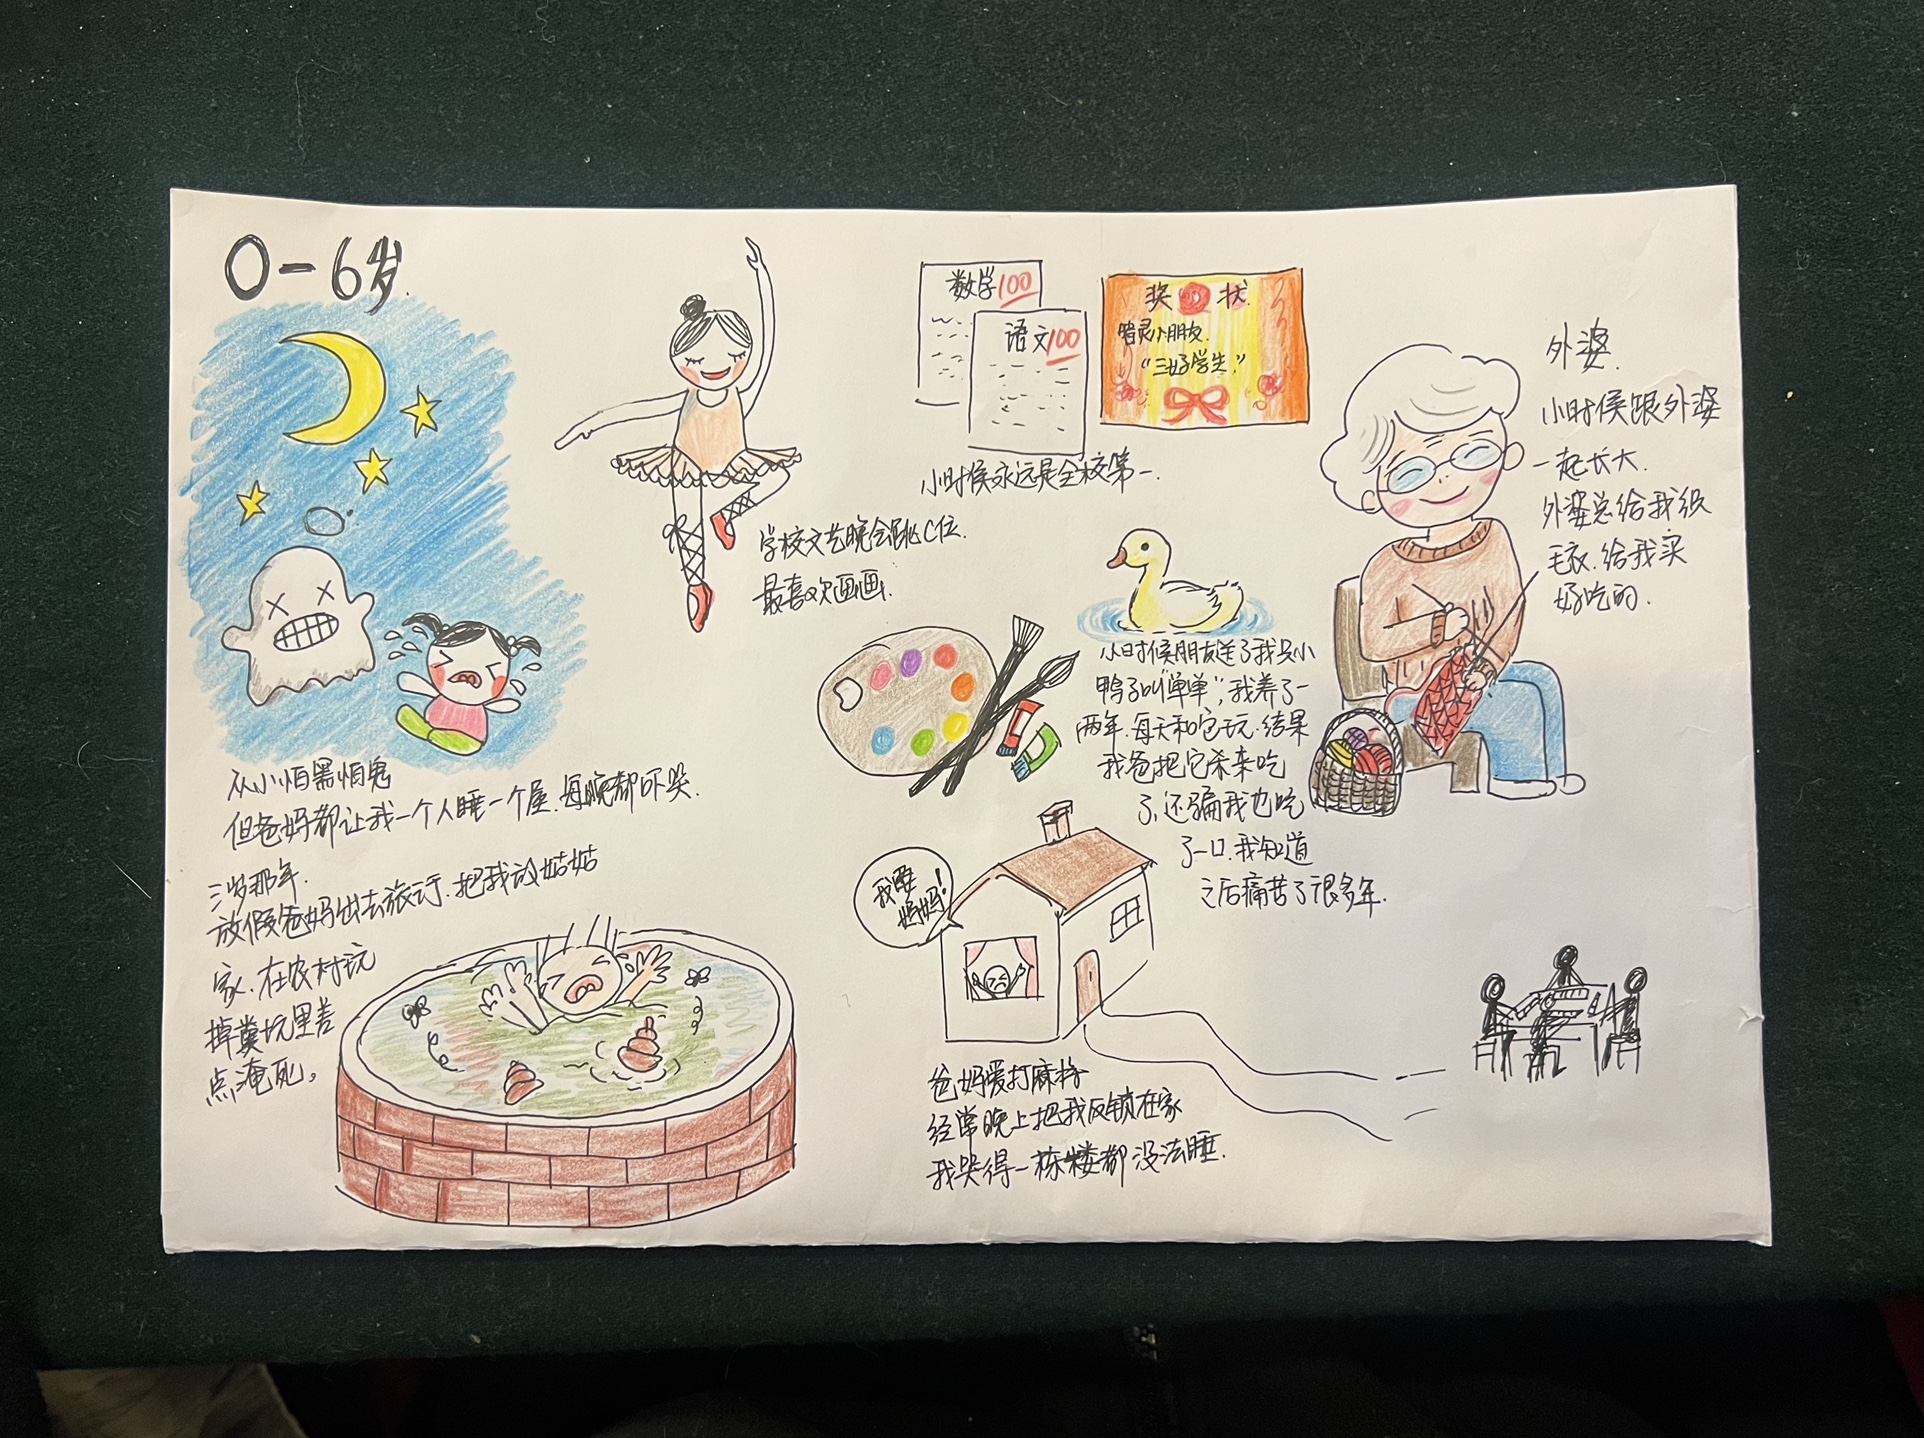 0-6岁.
从小怕黑怕鬼
但爸妈都让我一个人睡一个屋.每晚都吓哭.
三岁那年.
放假爸妈出去旅行.把我放姑姑
家.在农村玩
掉粪坑里差
点淹死。
学校文艺晚会跳C位.
最喜欢画画.
数学100
语文100
奖状.
小朋友.
“三好学生.”
小时候永远是全校第一.
小时候朋友送了我只小
鸭子叫“单单”,我养了一
两年.每天和它玩.结果
我爸把它杀来吃
了,还骗我也吃
了一口.我知道
之后痛苦了很多年.
外婆.
小时候跟外婆
一起长大.
外婆总给我织
毛衣.给我买
好吃的.
我要
妈妈!
爸妈爱打麻将
经常晚上把我反锁在家
我哭得一栋楼都没法睡.